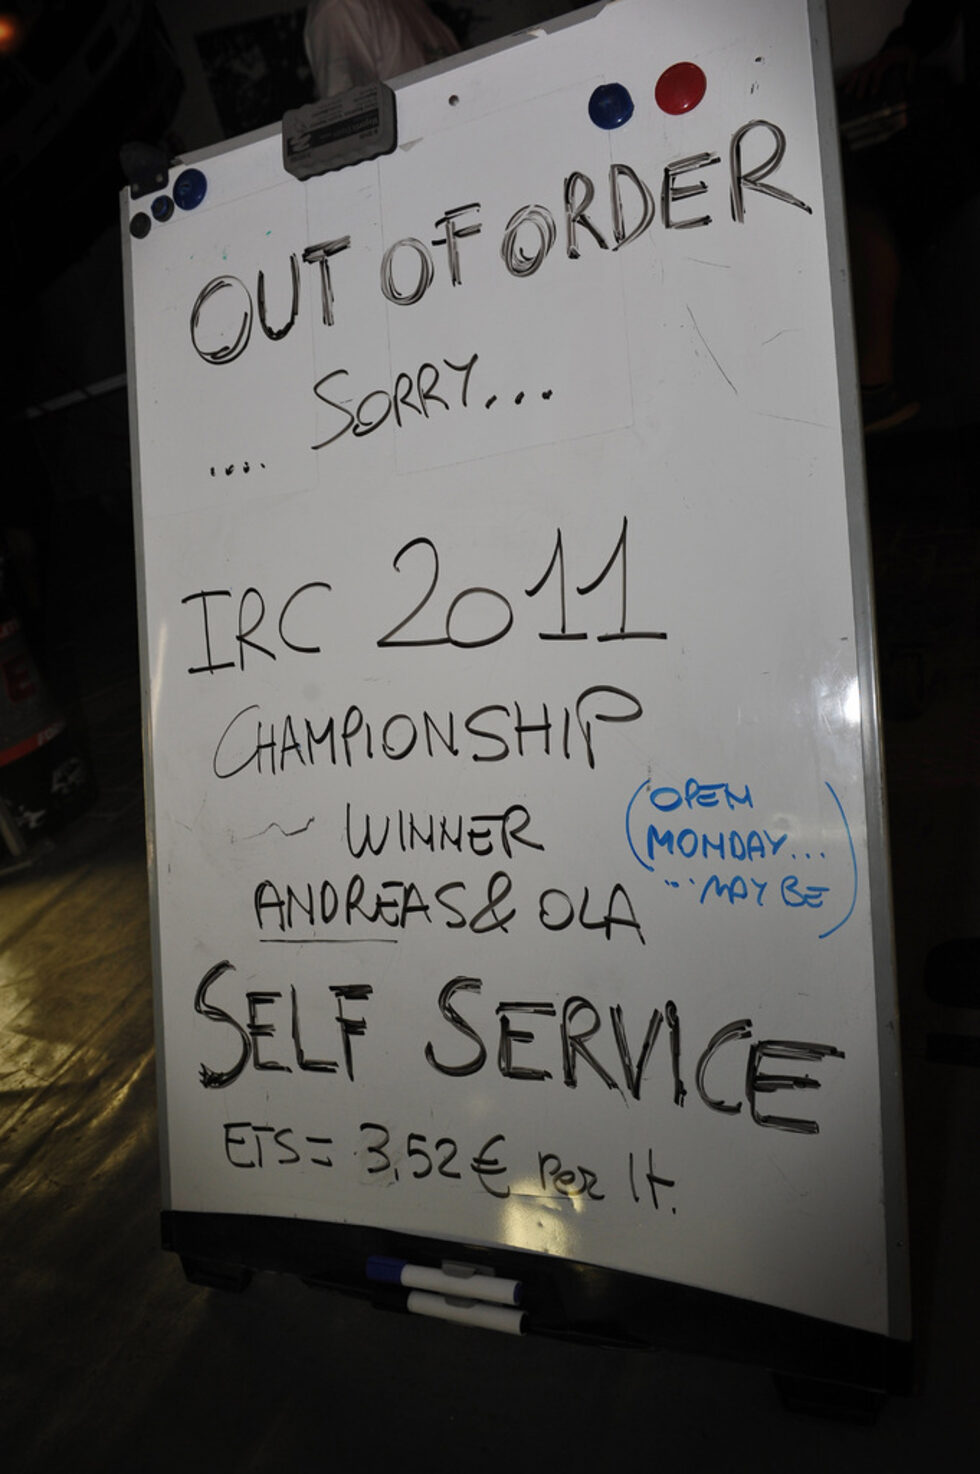 OUT OF ORDER
.... SORRY...
IRC 2011
CHAMPIONSHIP
WINNER
ANDREAS & OLA
(OPEN
MONDAY...
...MAY BE)
SELF SERVICE
ETS = 3,52 € PER lt.